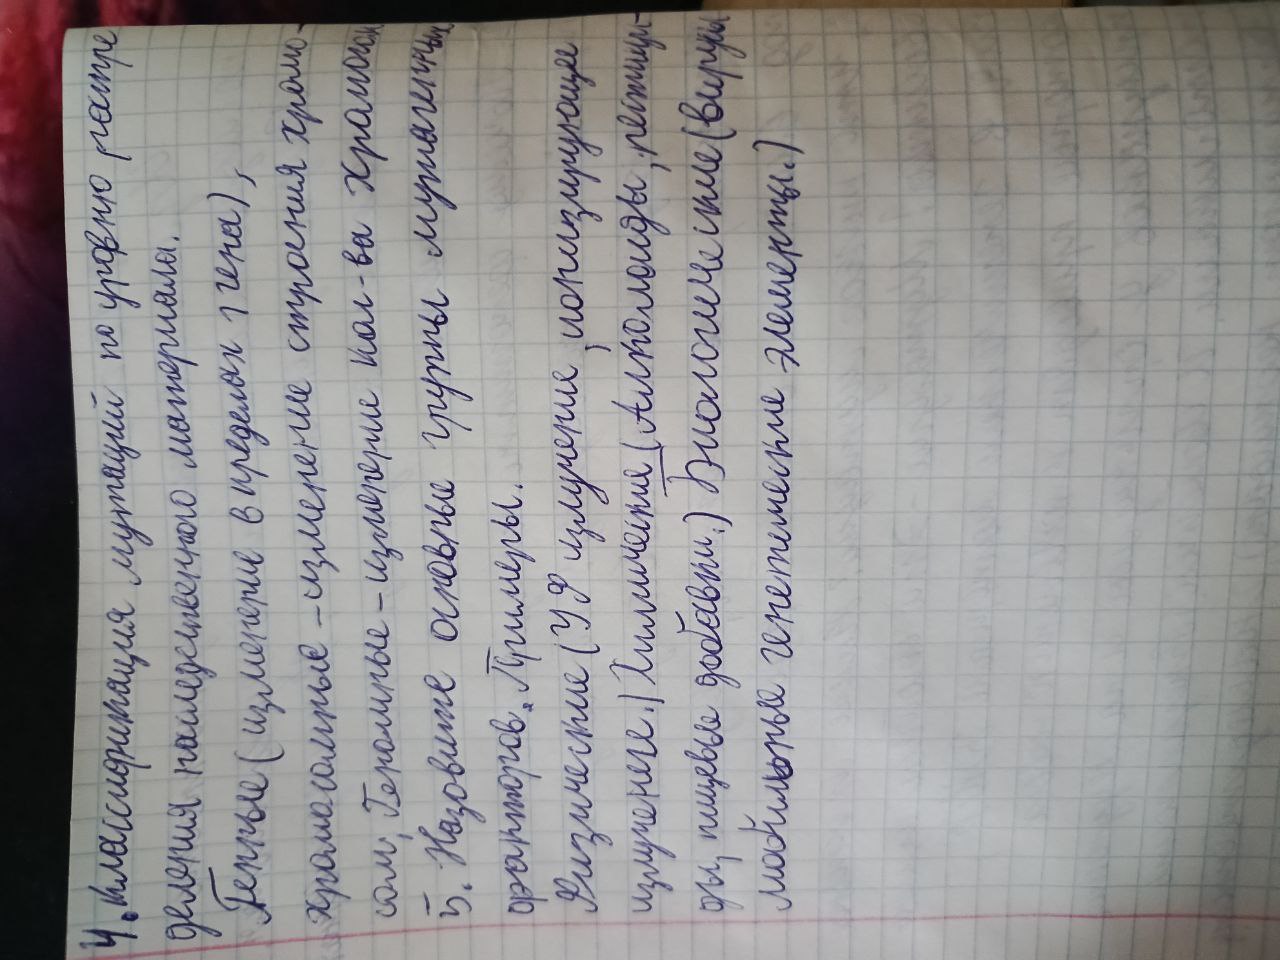 4. Классификация мутаций по уровню распре
деления наследственного материала.
Генные (изменение в пределах 1 гена),
хромосомные - изменение строения хромо-
сом, Геномные - изменение кол-ва хромосом
5. Назовите основные группы мутагенных
факторов. Примеры.
Физические (УФ излучение, ионизирующее
излучение.) Химические (Алкалоиды, пестици-
ды, пищевые добавки.) Биологические (вирусы
мобильные генетические элементы.)